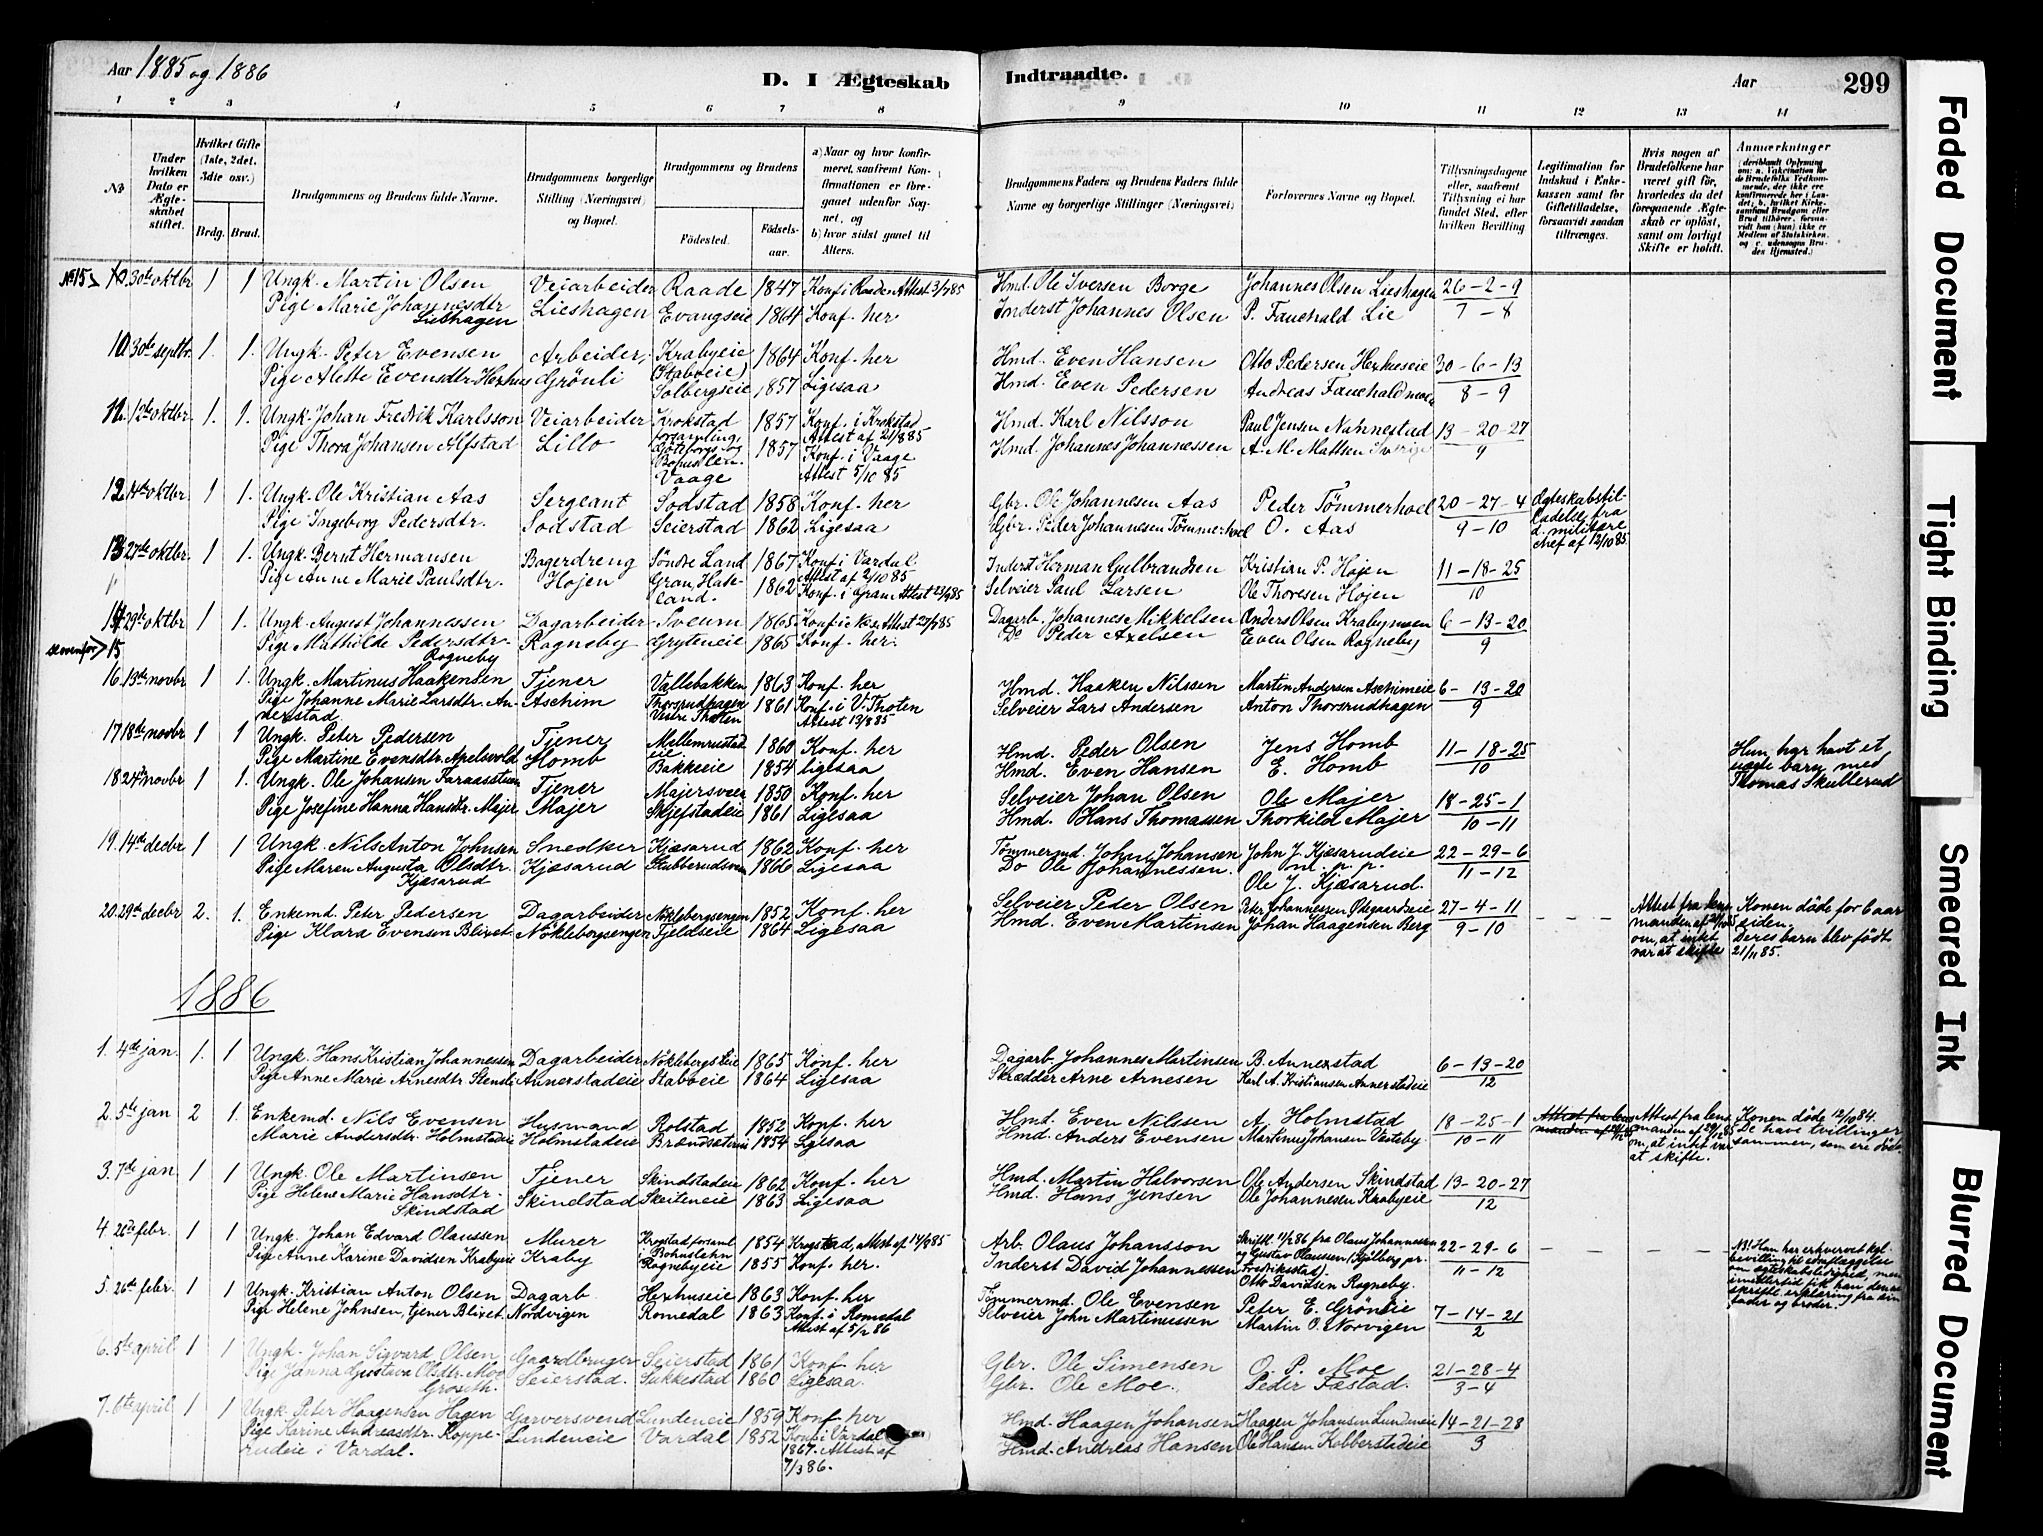 Aar 1885 og 1886
D. I Ægteskab Indtraadte.
Aar 299
1 2 3 4 5 6 7 8 9 10 11 12 13 14
No
Under hvilken Dato er Ægteskabet stiftet.
Hvilket Gifte (1ste, 2det, 3die osv.)
Brdg. Brud.
Brudgommens og Brudens fulde Navne.
Brudgommens borgerlige Stilling (Næringsvei) og Bopæl.
Brudgommens og Brudens
Födested. Födselsaar.
a) Naar og hvor konfirmeret, saafremt Konfirmationen er foregaaet udenfor Sognet, og
b) hvor sidst gaaet til Alters.
Brudgommens Faders og Brudens Faders fulde Navne og borgerlige Stillinger (Næringsvei)
Forlovernes Navne og Bopæl.
Tillysningsdagene eller, saafremt Tillysning ei har fundet Sted, efter hvilken Bevilling
Legitimation for Indskud i Enkekassen samt for Giftetilladelse, forsaavidt saadan tiltrænges.
Hvis nogen af Brudefolkene har været gift för, hvorledes da det foregaaende Ægteskab er oplöst, samt om lovligt Skifte er holdt.
Anmærkninger
No 15 30te oktbr 1 1 Ungk. Martin Olsen Veiarbeider Raade 1847 Konf. i Raade Attest 3/7 85 Hmd. Ole Iversen Borge Johannes Olsen Lieshagen 26-2-9
Pige Marie Johannesdtr Lieshagen Lieshagen Evangseie 1864 Konf. her Inderst Johannes Olsen P. Fauchald Lie 7-8
10 30te septbr. 1. 1. Ungk. Peter Evensen Arbeider, Krabyeie (Stabveie) 1864 Konf. her Hmd. Even Hansen Otto Pedersen Hexhuseie 30-6-13
Pige Alette Evensdtr. Hexhus Grönli Solbergseie 1857 Ligesaa Hmd. Even Pedersen Andreas Fauchald 8-9
11. 12te oktbr. 1. 1. Ungk. Johan Fredrik Karlsson Veiarbeider Krokstad forsamling, Göteborgs og Bohuslen. 1857 Konf. i Krokstad Attest af 21/8 85 Hmd. Karl Nilsson Paul Jensen Nahnestad 13-20-27
Pige Thora Johansen Alfstad Lillo Vaage 1857 Konf. i Vaage Attest 5/10 85 Hmd. Johannes Johannessen A. M. Mattsen Sverige 9
12. 14de oktbr. 1 1. Ungk. Ole Kristian Aas Sergeant Sodstad 1858 Konf. her Gbr. Ole Johannesen Aas Peder Tömmerhoel 20-27-4 Ægteskabstilladelse fra d. militære chef af 12/10 85.
Pige Ingeborg Pedersdtr. Sodstad Seierstad 1862 Ligesaa Gbr. Peder Johannesen Tömmerhoel O. Aas 9-10
13 27de oktbr. 1 1. Ungk. Bernt Hermansen Bagerdreng Söndre Land 1867 Konf. i Vardal Attest af 2/10 85 Inderst Herman Gulbrandsen Kristian P. Höjen 11-18-25
Pige Anne Marie Paulsdtr. Höjen Gran Hadeland. 1862 Konf. i Gran Attest Selveier Paul Larsen Ole Thoresen Höjen 10
14 29de oktbr 1 1. Ungk. August Johannessen Dagarbeider Sveum 1865 Konf. Attest Dagarb. Johannes Mikkelsen Anders Olsen Krabymoen 6-13-20
Pige Mathilde Pedersdtr. Rogneby Rogneby Gryteneie 1865 Konf. her. Do Peder Axelsen Even Olsen Rogneby 9
se ovenfor > 15
16. 13de novbr 1 1 Ungk. Martinus Haakensen Tjener Vallebakken 1863 Konf. her Hmd. Haaken Nilssen Martin Andersen Aschimeie 6-13-20
Pige Johanne Marie Larsdtr. Annerstad Aschim Thorsrudhagen Vestre Thoten 1861 Konf. i V. Thoten Attest 13/8 85 Selveier Lars Andersen Anton Thorsrudhagen 9
17 18de novbr 1 1 Ungk. Peter Pedersen Tjener Mellemrustadeie 1860 Konf. her Hmd. Peder Olsen Jens Homb 11-18-25 Hun har havt et uægte barn med Thomas Skullerud
Pige Martine Evensdtr. Apelsvold Homb Bakkeeie 1854 ligesaa Hmd. Even Hansen E. Homb 10
18 24de novbr 1 1. Ungk. Ole Johansen Tjener Majersveen 1850 Konf. her Selveier Johan Olsen Ole Majer 18-25-1
Pige Josefine Hanna Hansdtr. Majer Majer Skjefstadeie 1861 Ligesaa Hmd. Hans Thomassen Thorkild Majer 10-11
19. 14de decbr 1 1 Ungk. Nils Anton Johnsen Snedker Kjæsarud 1862 Konf. her Tömmermd. John Johansen John J. Kjæsarudeie 22-29-6
Pige Maren Augusta Olsdtr. Kjæsarud Kjæsarud Stubberudsmoen 1866 Ligesaa Do Ole Johannessen. m. p. p. Ole J. Kjæsarud. 11-12
20. 29de decbr 2. 1. Enkemd. Peter Pedersen Dagarbeider Nöklebergsengen 1852 Konf. her Selveier Peder Olsen Peter Johannessen Ödegaardseie 27-4-11 - - - Attest fra lensmanden om, at intet var at skifte Konen döde for 6 aar siden. Deres barn blev födt 21/11 85.
Pige Klara Evensen Blixet Nöklebergsengen Fjeldseie 1864 Ligesaa Hmd. Even Martinsen Johan Haagensen Berg 9-10
1886
1. 4de jan. 1. 1 Ungk. Hans Kristian Johannessen Dagarbeider Nöklebergseie 1865 Konf. her Dagarb. Johannes Martinsen B. Annexstad 6-13-20
Pige Anne Marie Arnesdtr. Stensli Annexstadeie Stabveie 1864 Ligesaa Skrædder Arne Arnesen Karl A. Kristiansen Annexstadeie 12
2. 5te jan 2 1. Enkemd. Nils Evensen Husmand Rolstad 1852 Konf. her Hmd. Even Nilssen A. Holmstad 18-25-1 Attest fra lensmanden af Attest fra lensmanden af 29/12 85 om, at intet var at skifte. Konen döde 12/10 84. De have tvillinger sammen, som ere döde.
Marie Andersdtr. Holmstadeie Holmstadeie Brændsætereie 1854 Ligesaa Hmd. Anders Evensen Martinus Johansen Vesteby 10-11
3. 7de jan 1 1 Ungk. Ole Martinsen Tjener Skindstadeie 1862 Konf. her Hmd. Martin Halvorsen Ole Andersen Skindstad 13-20-27
Pige Helene Marie Hansdtr. Skindstad Skindstad Skeiteneie 1863 Ligesaa Hmd. Hans Jensen Ole Johannesen Krabyeie 12
4. 26de febr. 1 1 Ungk. Johan Edvard Olaussen Murer Krogstad forsaml. i Bohuslehn 1854 Krogstad, Attest af Arb. Olaus Johansson Skriftl. 11/2 86 fra Olaus Johannessen og Gustav Olaussen (Kjölberg pr. Fredriksstad). 22-29-6 - - - - NB! Han har erhvervet kgl. bevilling til eftergivelse om ægteskabsledighed, men imidlertid fik han denne skriftl. erklæring fra sin fader og broder.
Pige Anne Karine Davidsen Krabyeie Kraby Rognebyeie 1855 Konf. her. Inderst David Johannessen Otto Davidsen Rogneby. 11-12
5. 26de febr. 1 1 Ungk. Kristian Anton Olsen Dagarb Hexhuseie 1863 Konf. her Tömmermd. Ole Evensen Peter E. Grönlie 7-14-21
Pige Helene Johnsen, tjener Blixet. Nordvigen Romedal 1863 Konf. i Romedal Attest af 5/2 86 Selveier John Martinussen Martin O. Norvigen 2
6. 5te april 1 1 Ungk. Johan Sigvard Olsen Gaardbruger Seierstad 1861 Konf. her Gbr. Ole Simensen O. P. Moe 21-28-4
Pige Janna Gustava Olsdtr. Moe Groseth. Seierstad. Sukkestad 1860 Ligesaa. Gbr. Ole Moe. Peder Fæstad. 3-4
7. 6te april 1 1 Ungk. Peter Haagensen Hagen Garversvend Lundeneie 1859 Konf. her Hmd. Haagen Johansen Haagen Johansen Lundeneie 14-21-28
Pige Karine Andreasdtr. Kopperudeie i Vardal. Lundeneie Vardal 1852 Konf. i Vardal 1867. Attest af 7/3 86. Hmd. Andreas Hansen Ole Hansen Kobberstadeie 3
Faded Document
Tight Binding
Smeared Ink
Blurred Document